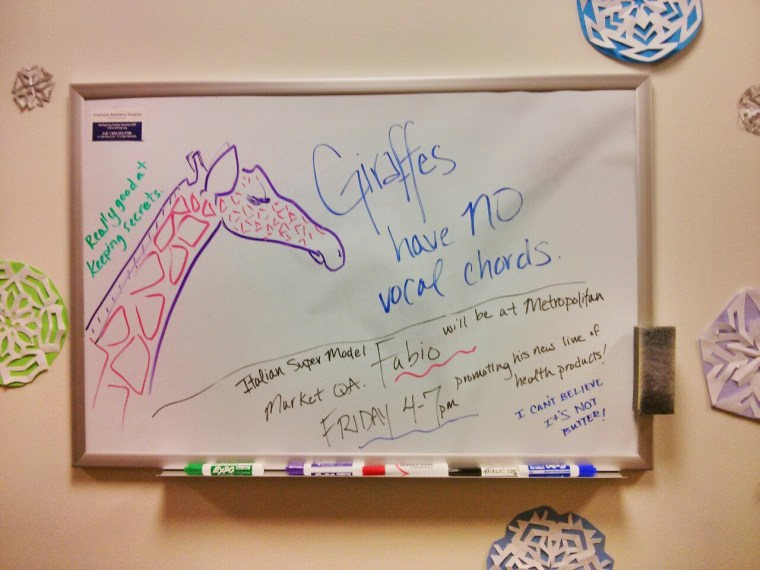 Employee Assistance Program
Really good at
keeping secrets.
Giraffes
have no
vocal chords.
Italian Super Model Fabio will be at Metropolitan
Market QA. promoting his new line of
health products!
FRIDAY 4-7pm
I CAN'T BELIEVE
IT'S NOT
BUTTER!
EXPO